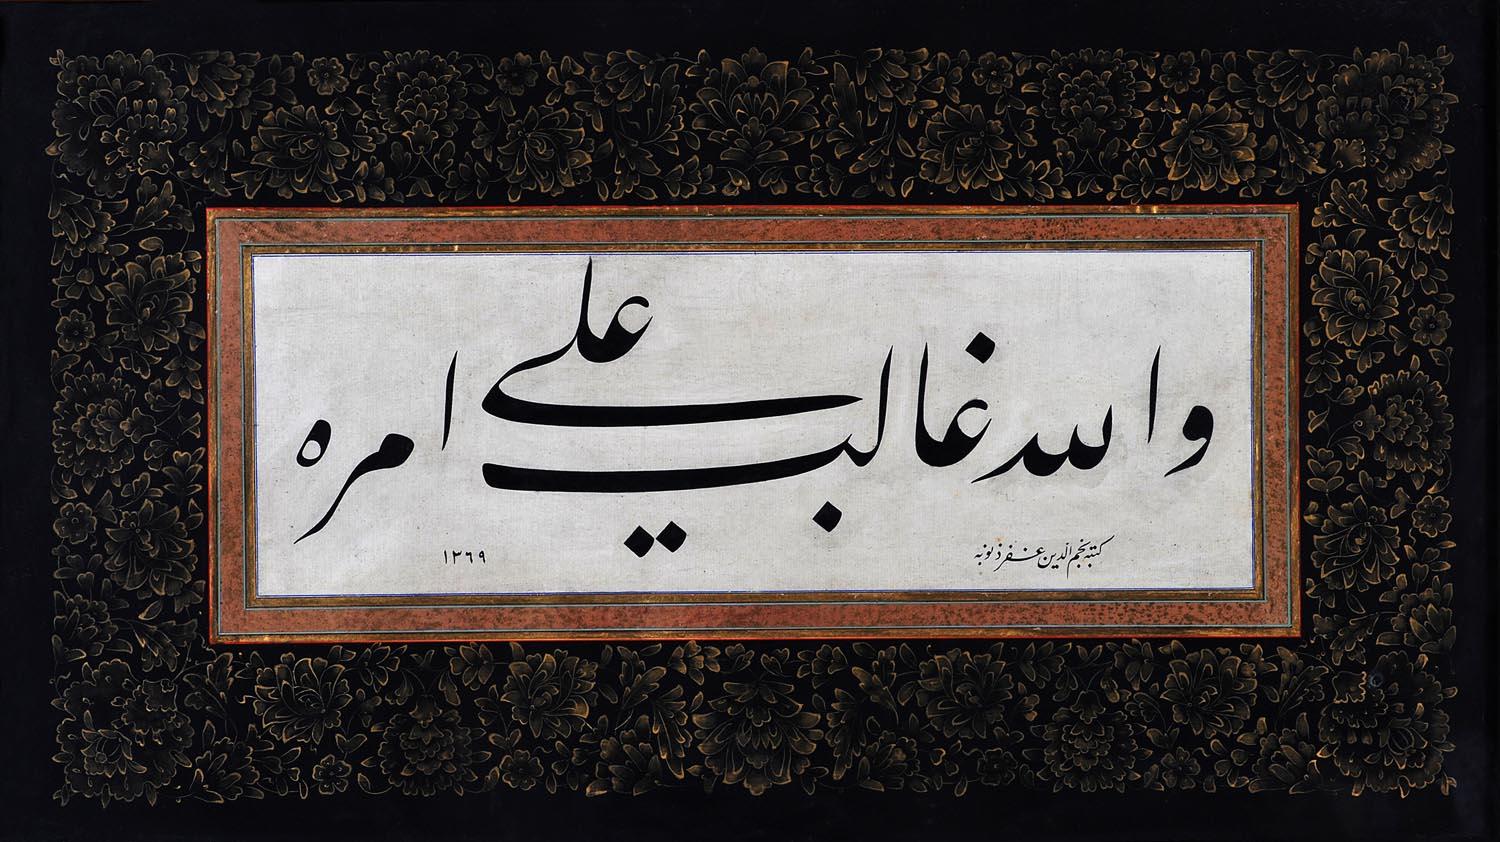 والله غالب علي امره
كتبه نجم الدين غفر ذنوبه
١٣٦٩